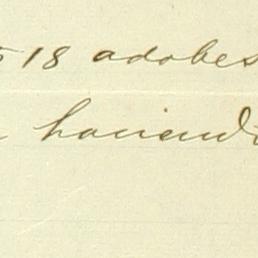 18 adobes
haciend